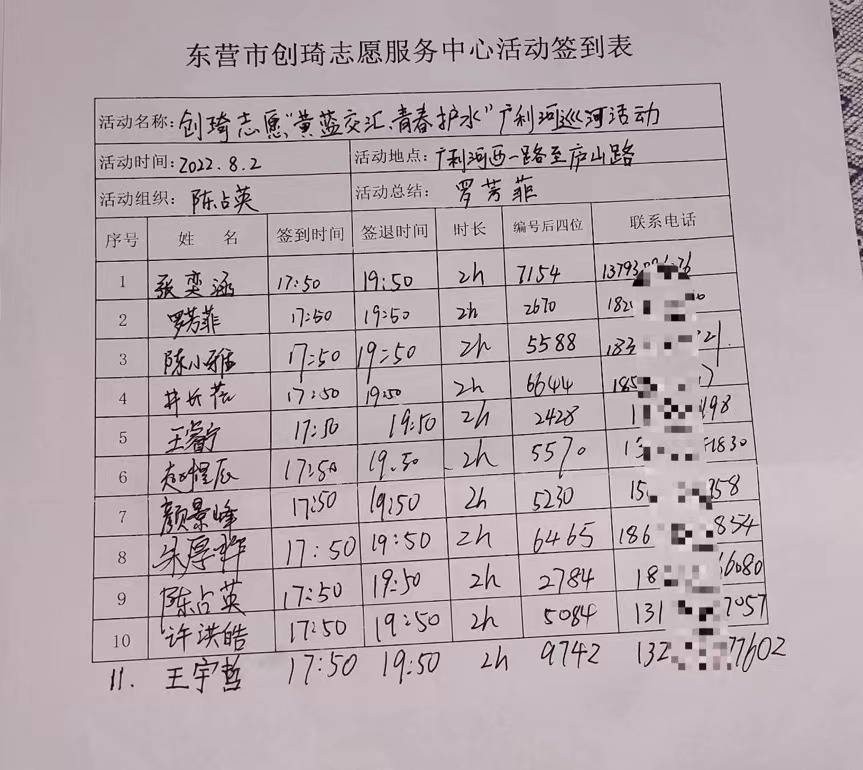 东营市创琦志愿服务中心活动签到表
活动名称: 创琦志愿"黄蓝交汇、青春护水"广利河巡河活动
活动时间: 2022.8.2 活动地点: 广利河西一路至庐山路
活动组织: 陈占英 活动总结: 罗芳菲
序号 姓 名 签到时间 签退时间 时长 编号后四位 联系电话
1 张奕涵 17:50 19:50 2h 7154 13793
2 罗芳菲 17:50 19:50 2h 2670 182
3 陈小雅 17:50 19:50 2h 5588 183 21
4 井长 17:50 19:50 2h 6644 185 7
5 王睿宁 17:50 19:50 2h 2428 1 498
6 赵恺辰 17:50 19:50 2h 5570 1 1830
7 颜景峰 17:50 19:50 2h 5230 15 358
8 朱厚 17:50 19:50 2h 6465 186 854
9 陈占英 17:50 19:50 2h 2784 18 6080
10 许洪皓 17:50 19:50 2h 5084 131 7057
11. 王宇哲 17:50 19:50 2h 9742 132 77602